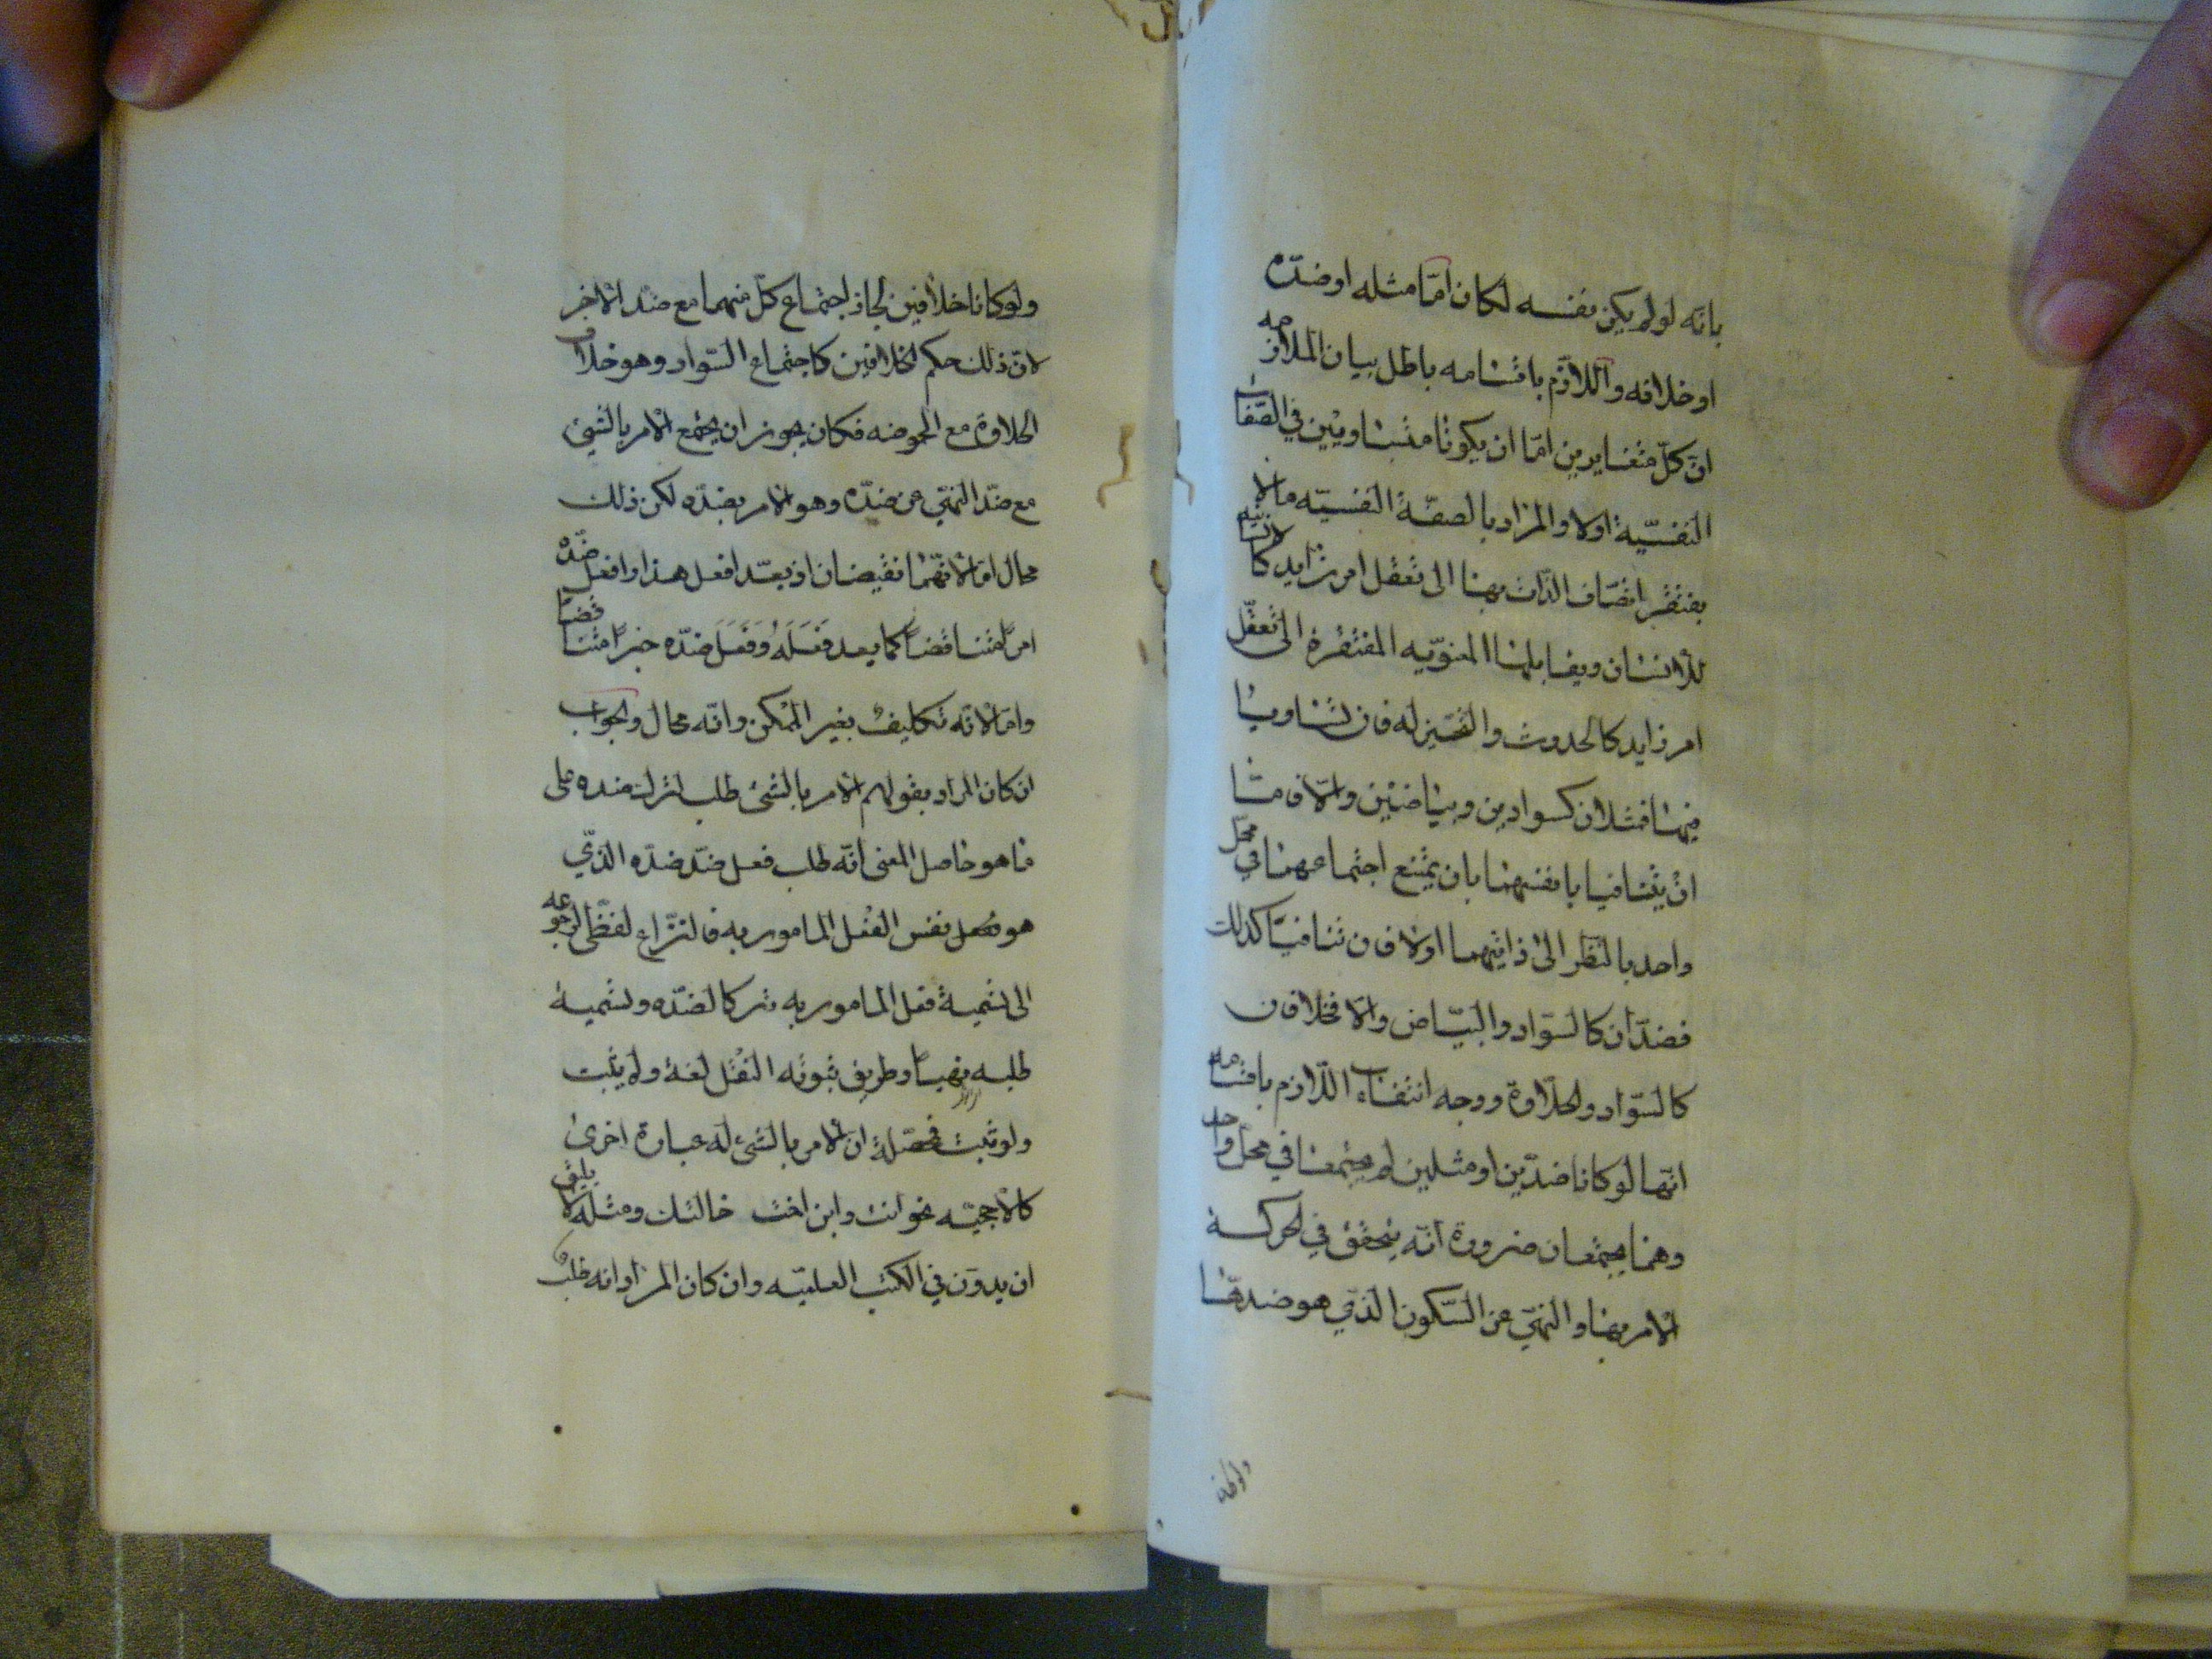 بانّه لو لم يكن نفسه لكان امّا مثله او ضدّه
او خلافه واللّازم باقسامه باطل بيان الملازمه
انّ كلّ متغايرين امّا ان يكونا متساويين في الصّفات
النفسيّة اولا والمراد بالصفة النفسيّه مالا
يفتقر اتصاف الذّات بها الى تعقل امر زايد كالانسانيّه
للأنسان ويقابلها المعنويّه المفتقرة الى تعقّل
امر زايد كالحدوث والتّحيّز له فان تساويا
فيها فمثلان كسوادين وبياضين والّا فامّا
ان يتنافيا بانفسهما بان يمتنع اجتماعهما في محلّ
واحد بالنّظر الى ذاتيهما اولا فان تنافيا كذلك
فضدّان كالسّواد والبيّاض والّا فخلافان
كالسّواد والحلاوة ووجه انتفاء اللّازم باقسامه
انّهما لو كانا ضدّين او مثلين لم يجتمعا في محلّ واحد
وهما يجتمعان ضرورة انّه يتحقق في الحركة
الامر بها والنّهي عن السّكون الذّي هو ضدهّا
ولو كانا
ولو كانا خلافين لجاز اجتماع كلّ منهما مع ضدّ الاخر
لانّ ذلك حكم الخلافين كاجتماع السّواد وهو خلاف
الحلاوة مع الحموضه فكان يجوز ان يجتمع الامر بالشيئ
مع ضدّ النّهي عن ضدّه وهو الامر بضدّه لكن ذلك
محال امّا لانّهما نقيضان اذ يعدّ افعل هذا وافعل ضدّه
امرًا متناقضاً كما يعد فَعَلَهُ وَفَعَلَ ضدّه خبرًا متناقضا
وامّا لانّه تكليفٌ بغير الممكن وانّه محال والجواب
ان كان المراد بقولهم الامر بالشئ طلب لترك ضده على
ما هو حاصل المعنى انّه طلب فعل ضدّ ضدّه الذّي
هو فعل نفس الفعل المامور به فالنّزاع لفظّي لرجوعه
الى تسمية فعل المامور به تركا لضدّه وتسمية
طلبه نهياً وطريق ثبوته النّقل لغة ولم يثبت
ولو ثبت فمحصّله ان الامر بالشئ له عبارة اخرى
كالاحجيّه نحو انت وابن اخت خالتك ومثله لا يليق
ان يدوّن في الكتب العلميّه وان كان المراد انه طلب